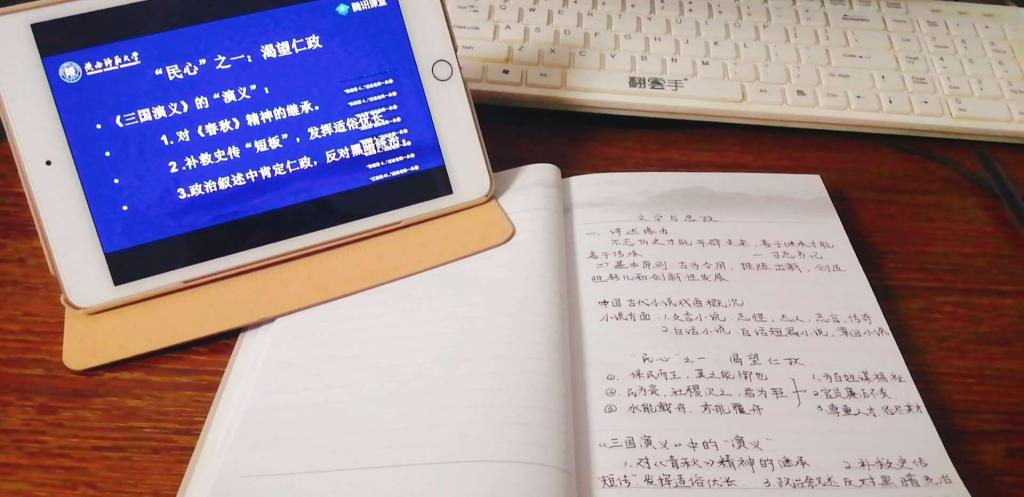 陕西师范大学
腾讯课堂
“民心”之一：渴望仁政
• 《三国演义》的“演义”：
1.对《春秋》精神的继承。
2.补救史传“短板”，发挥适俗优长。
3.政治叙述中肯定仁政，反对黑暗
翻客手
文学与思政
一、讲述缘由
不忘历史才能开辟未来，善于继承才能
善于传承 — 习总书记
二、基本原则：古为今用，推陈出新，创造
性转化和创新性发展
中国古代小说戏曲概况
小说方面：1.文言小说：志怪，志人，志言，传奇
2.白话小说：白话短篇小说，章回小说
“民心”之一：渴望仁政
①、保民而王，莫之能御也
②、民为贵，社稷次之，君为轻
③ 水能载舟，亦能覆舟
1.为百姓谋福祉
2.官员廉洁不贪
3.尊重人才
《三国演义》中的“演义”
1.对《春秋》精神的继承 2.补救史传
“短传”发挥适俗优长 3.政治叙述反对黑暗统治